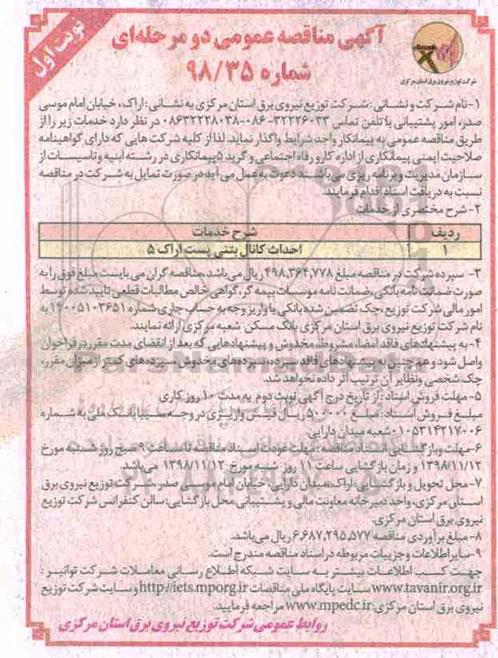 نوبت اول
آگهی مناقصه عمومی دو مرحله‌ای
شماره ۹۸/۳۵
شرکت توزیع نیروی برق استان مرکزی
۱- نام شرکت و نشانی: شرکت توزیع نیروی برق استان مرکزی به نشانی: اراک، خیابان امام موسی
صدر، امور پشتیبانی با تلفن تماس ۳۲۲۲۶۰۳۳-۰۸۶ ۰۸۶۳۲۲۲۸۰۳۸ در نظر دارد خدمات زیر را از
طریق مناقصه عمومی به پیمانکار واجد شرایط واگذار نماید. لذا از کلیه شرکت هایی که دارای گواهینامه
صلاحیت ایمنی پیمانکاری از اداره کار و رفاه اجتماعی و گرید ۵ پیمانکاری در رشته ابنیه و تاسیسات از
سازمان مدیریت و برنامه ریزی می باشند دعوت به عمل می آید در صورت تمایل به شرکت در مناقصه
نسبت به دریافت اسناد اقدام فرمایند.
۲- شرح مختصری از خدمات
ردیف شرح خدمات
۱ احداث کانال بتنی پست اراک ۵
۳- سپرده شرکت در مناقصه مبلغ ۴۹۸,۳۶۴,۷۷۸ ریال می باشد، مناقصه گران می بایست مبلغ فوق را به
صورت ضمانت نامه بانکی، ضمانت نامه موسسات بیمه گر، گواهی خالص مطالبات قطعی تایید شده توسط
امور مالی شرکت توزیع، چک تضمین شده بانکی یا واریز وجه به حساب جاری شماره ۱۴۰۰۵۱۰۳۶۵۱ به
نام شرکت توزیع نیروی برق استان مرکزی بانک مسکن شعبه مرکزی ارائه نمایند.
۴- به پیشنهادهای فاقد امضا، مشروط، مخدوش و پیشنهادهایی که بعد از انقضای مدت مقرر در فراخوان
واصل شود و همچنین به پیشنهادهای فاقد سپرده، سپرده‌های مخدوش، سپرده‌های کمتر از میزان مقرر،
چک شخصی و نظایر آن ترتیب اثر داده نخواهد شد.
۵- مهلت فروش اسناد: از تاریخ درج آگهی نوبت دوم به مدت ۱۰ روز کاری
مبلغ فروش اسناد: مبلغ ۵۰۰/۰۰۰ ریال فیش واریزی در وجه سیبا بانک ملی به شماره
۰۱۰۵۳۱۴۲۱۷۰۰۶ شعبه میدان دارایی.
۶- مهلت و بازگشایی اسناد مناقصه: مهلت عودت اسناد مناقصه تا ساعت ۹ صبح روز شنبه مورخ
۱۳۹۸/۱۱/۱۲ و زمان بازگشایی ساعت ۱۱ روز شنبه مورخ ۱۳۹۸/۱۱/۱۲ می باشد.
۷- محل تحویل و بازگشایی: اراک، میدان دارایی، خیابان امام موسی صدر، شرکت توزیع نیروی برق
استان مرکزی، واحد دبیرخانه معاونت مالی و پشتیبانی، محل بازگشایی: سالن کنفرانس شرکت توزیع
نیروی برق استان مرکزی.
۸- مبلغ برآوردی مناقصه ۶,۶۸۷,۲۹۵,۵۷۷ ریال می باشد.
۹- سایر اطلاعات و جزییات مربوطه در اسناد مناقصه مندرج است.
جهت کسب اطلاعات بیشتر به سایت شبکه اطلاع رسانی معاملات شرکت توانیر:
www.tavanir.org.ir سایت پایگاه ملی مناقصات http://iets.mporg.ir و سایت شرکت توزیع
نیروی برق استان مرکزی: www.mpedc.ir مراجعه فرمایید.
روابط عمومی شرکت توزیع نیروی برق استان مرکزی